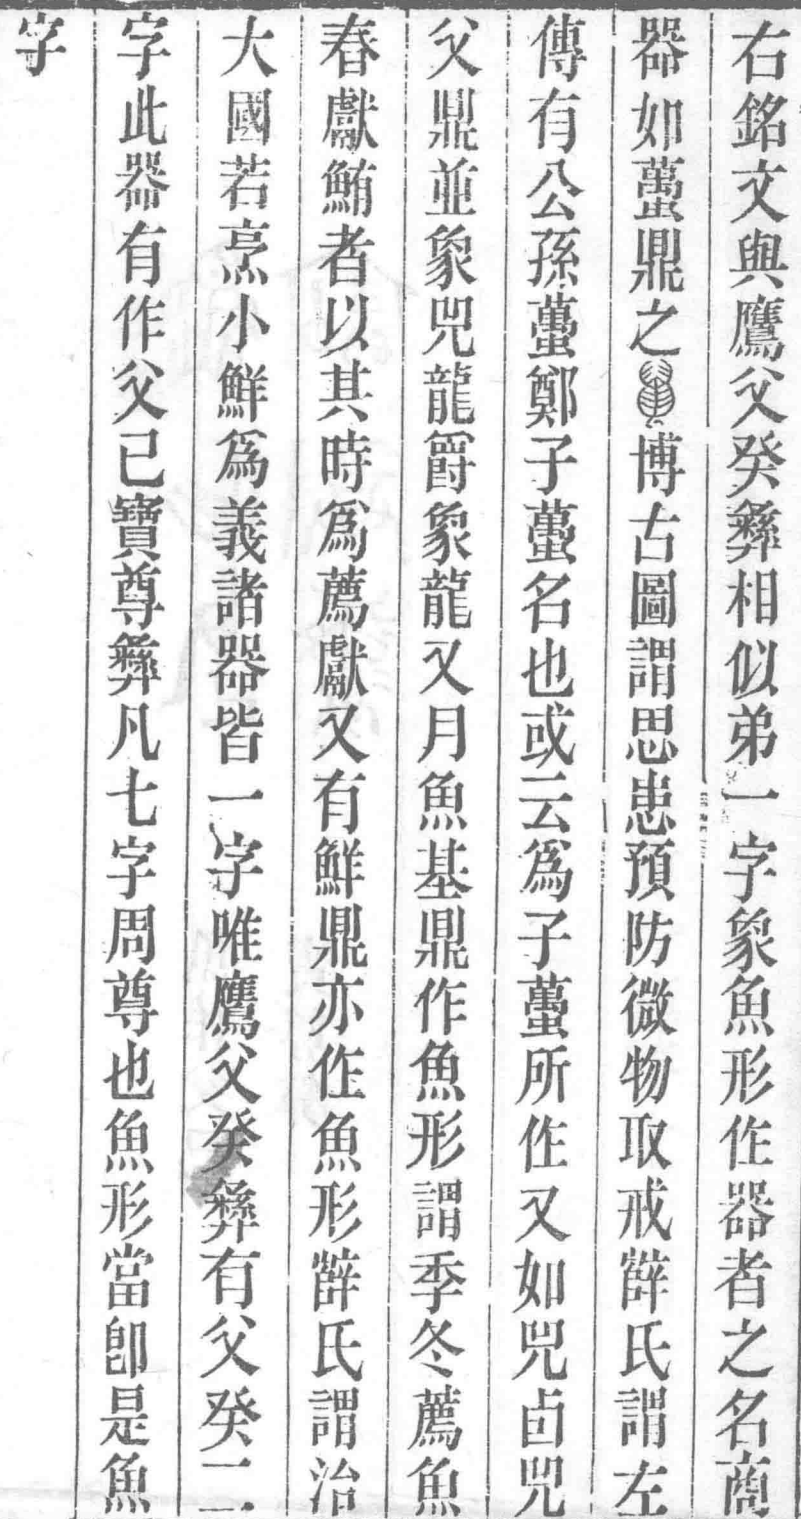 右銘文與鷹父癸彝相似弟一字象魚形作器者之名商
器如蠆鼎之博古圖謂思患預防微物取戒薛氏謂左
傳有公孫蠆鄭子蠆名也或云為子蠆所作又如兕卣兕
父鼎並象兕龍爵象龍又月魚基鼎作魚形謂季冬薦魚
春獻鮪者以其時為薦獻又有鮮鼎亦作魚形薛氏謂治
大國若烹小鮮為義諸器皆一字唯鷹父癸彝有父癸二
字此器有作父己寶尊彝凡七字周尊也魚形當即是魚
字